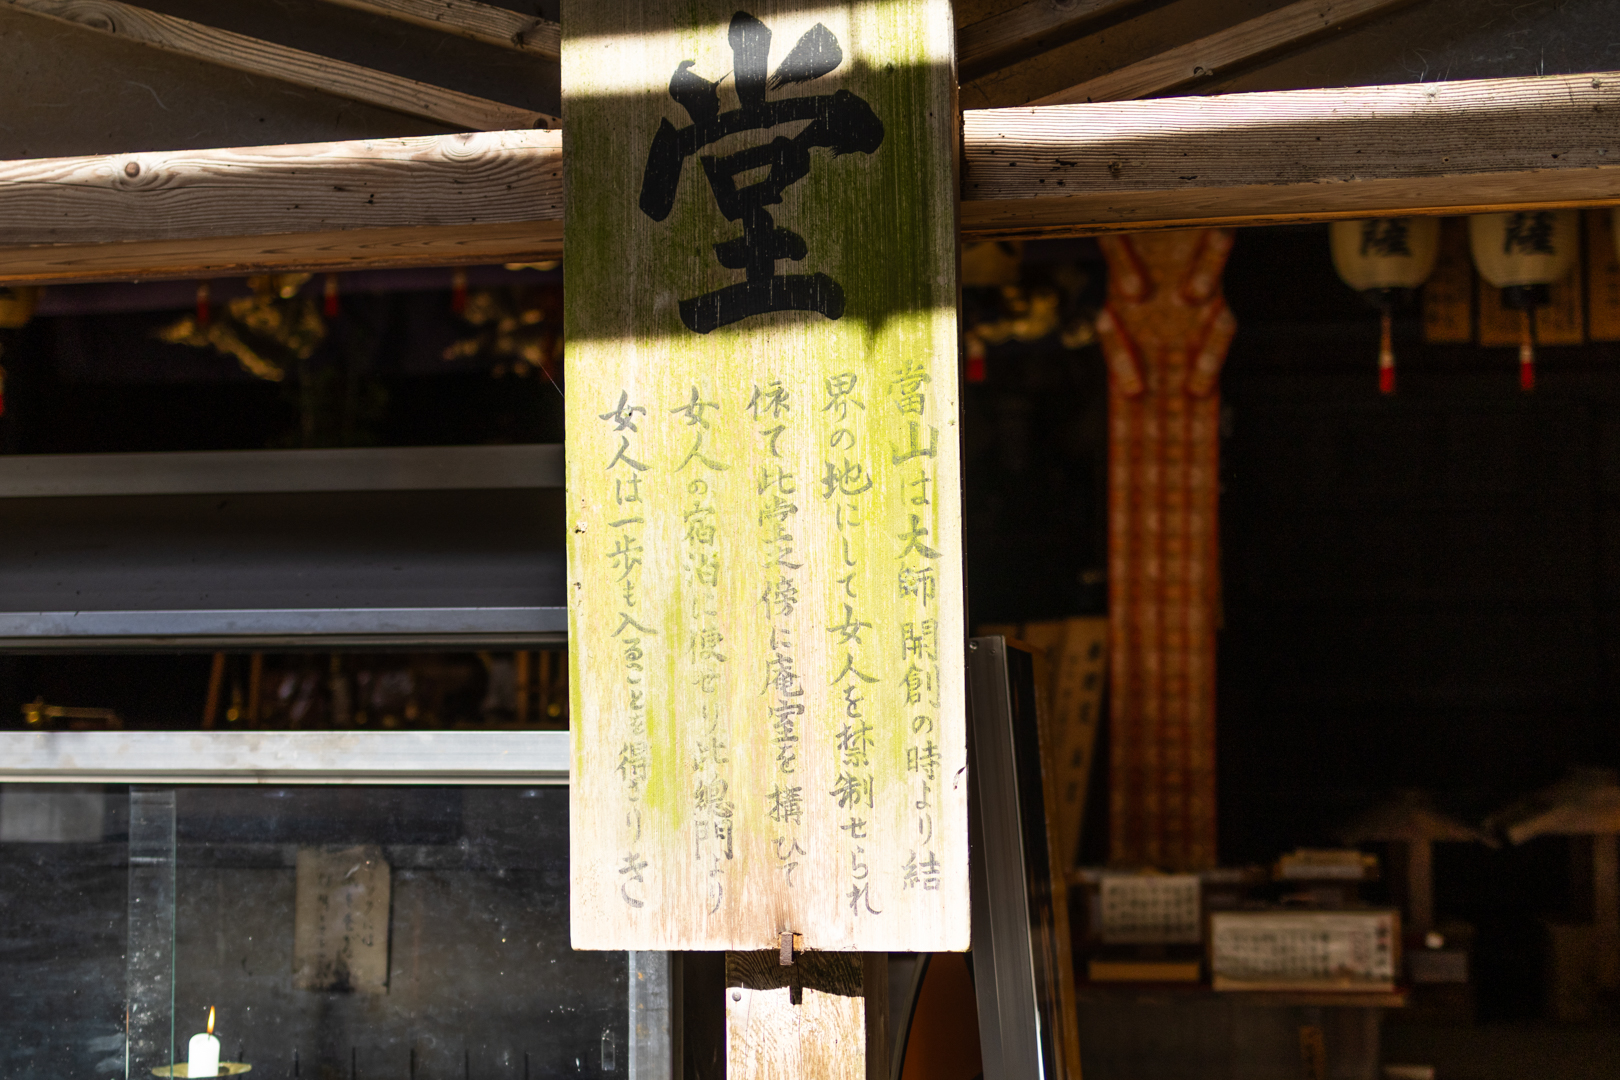 堂
當山は大師開創の時より結
界の地にして女人を禁制せられ
依て此堂之傍に庵室を搆ひて
女人の宿泊に便せり此總門より
女人は一歩も入ることを得さりき
薩
薩